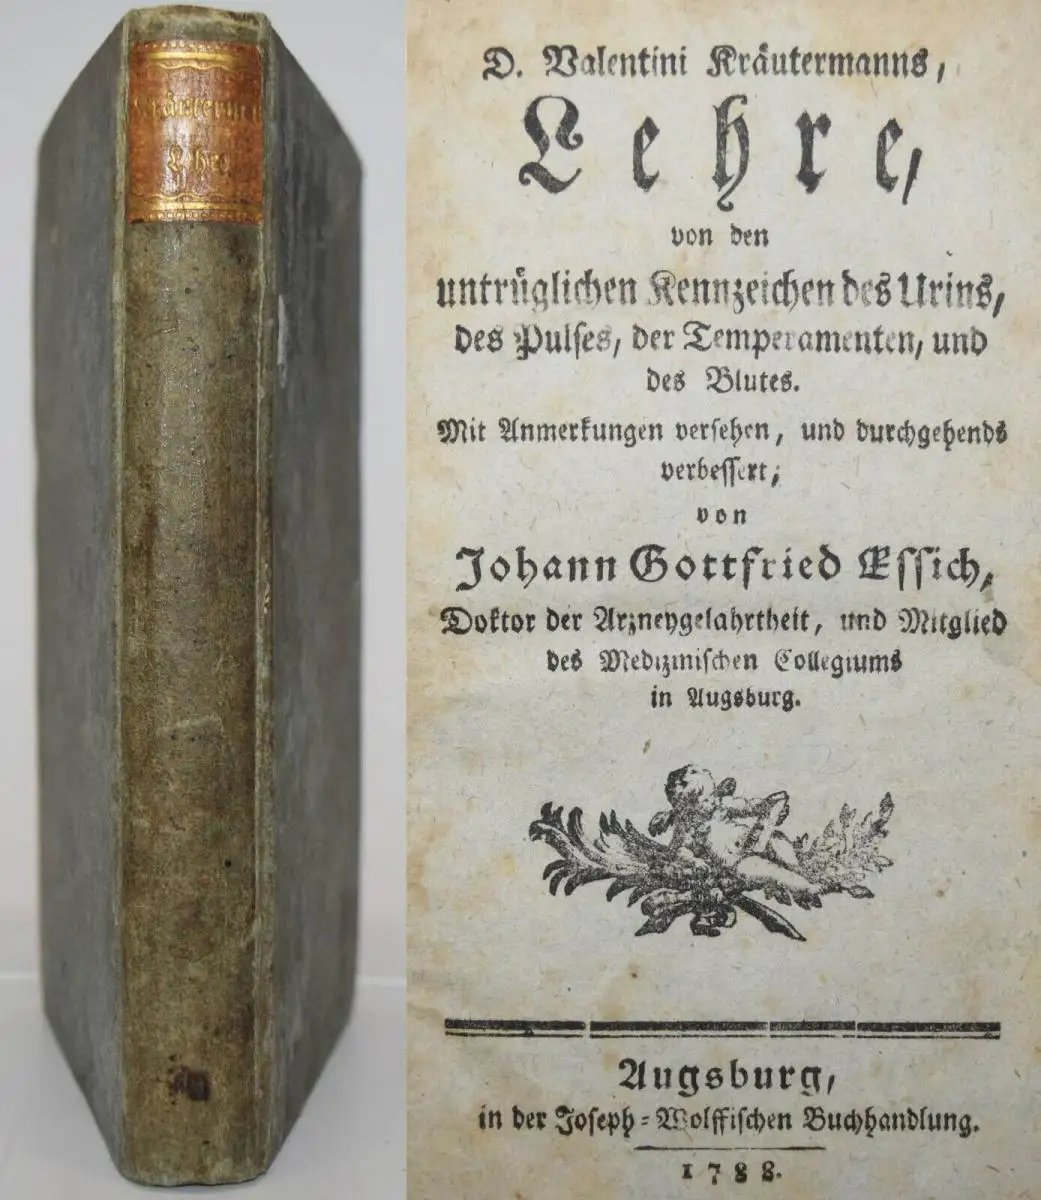 Lehre
D. Valentini Kräutermanns,
Lehre,
von den
untrüglichen Kennzeichen des Urins,
des Pulses, der Temperamenten, und
des Blutes.
Mit Anmerkungen versehen, und durchgehends
verbessert;
von
Johann Gottfried Essich,
Doktor der Arzneygelahrtheit, und Mitglied
des Medizinischen Collegiums
in Augsburg.
Augsburg,
in der Joseph-Wolffischen Buchhandlung.
1788.